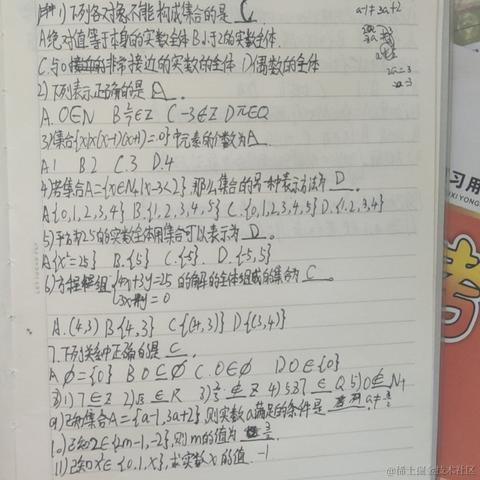 1)下列各对象不能构成集合的是 C.
a-1≠3a+2
A绝对值等于本身的实数全体 B小于2的实数全体.
C.与0非常接近的实数的全体 D)偶数的全体
2a=3
2)下列表示正确的是 A.
A. 0∈N B ∈Z C -3∉Z D π∈Q
3)集合{x|x(x-1)(x+1)=0}中元素的个数为A
A1 B2 C.3 D.4
4)若集合A={x∈N+|x-3<2}, 那么集合的另一种表示方法为 D.
A{0,1,2,3,4} B.{1,2,3,4,5} C.{0,1,2,3,4,5} D.{1.2,3,4}
5)平方为25的实数全体用集合可以表示为 D.
A{x²=25} B.{5} C.{5}. D.{-5,5}
6)方程组{4x+3y=25 的解的全体组成的集合为 C.
=0
A.(4,3) B{4,3} C{(4,3)} D{(3,4)}
7.下列关系中正确的是 C.
A ∅={0} B 0⊆∅ C. 0∉∅ D 0∈{0}
1)7∈Z ∈R ∉Z 4)5.37∈Q 5)0∉N+
9)已知集合A={a-1,3a+2},则实数a满足的条件是
10)已知2∈{2m-1,-2},则m的值为
11)已知x²∈{0,1,x},求实数x的值. -1
习用
XIYONG
考
@稀土掘金技术社区